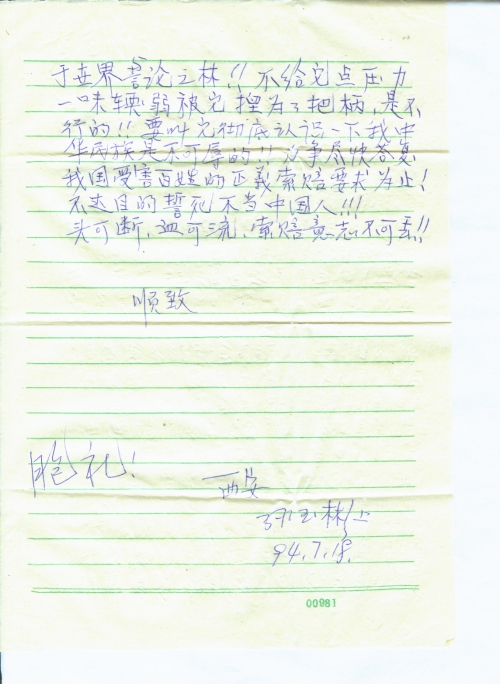 于世界誉论之林!! 不给它点压力
一味软弱被它捏为了把柄,是不
行的!! 要叫它彻底认识一下我中
华民族是不可辱的!! 力争尽快答复
我国受害百姓的正义索赔要求为止!
不达目的誓死不当中国人!!!
头可断,血可流,索赔意志不可丢!!
顺致
敬礼!
西安
玉林
94.7.18.
00981